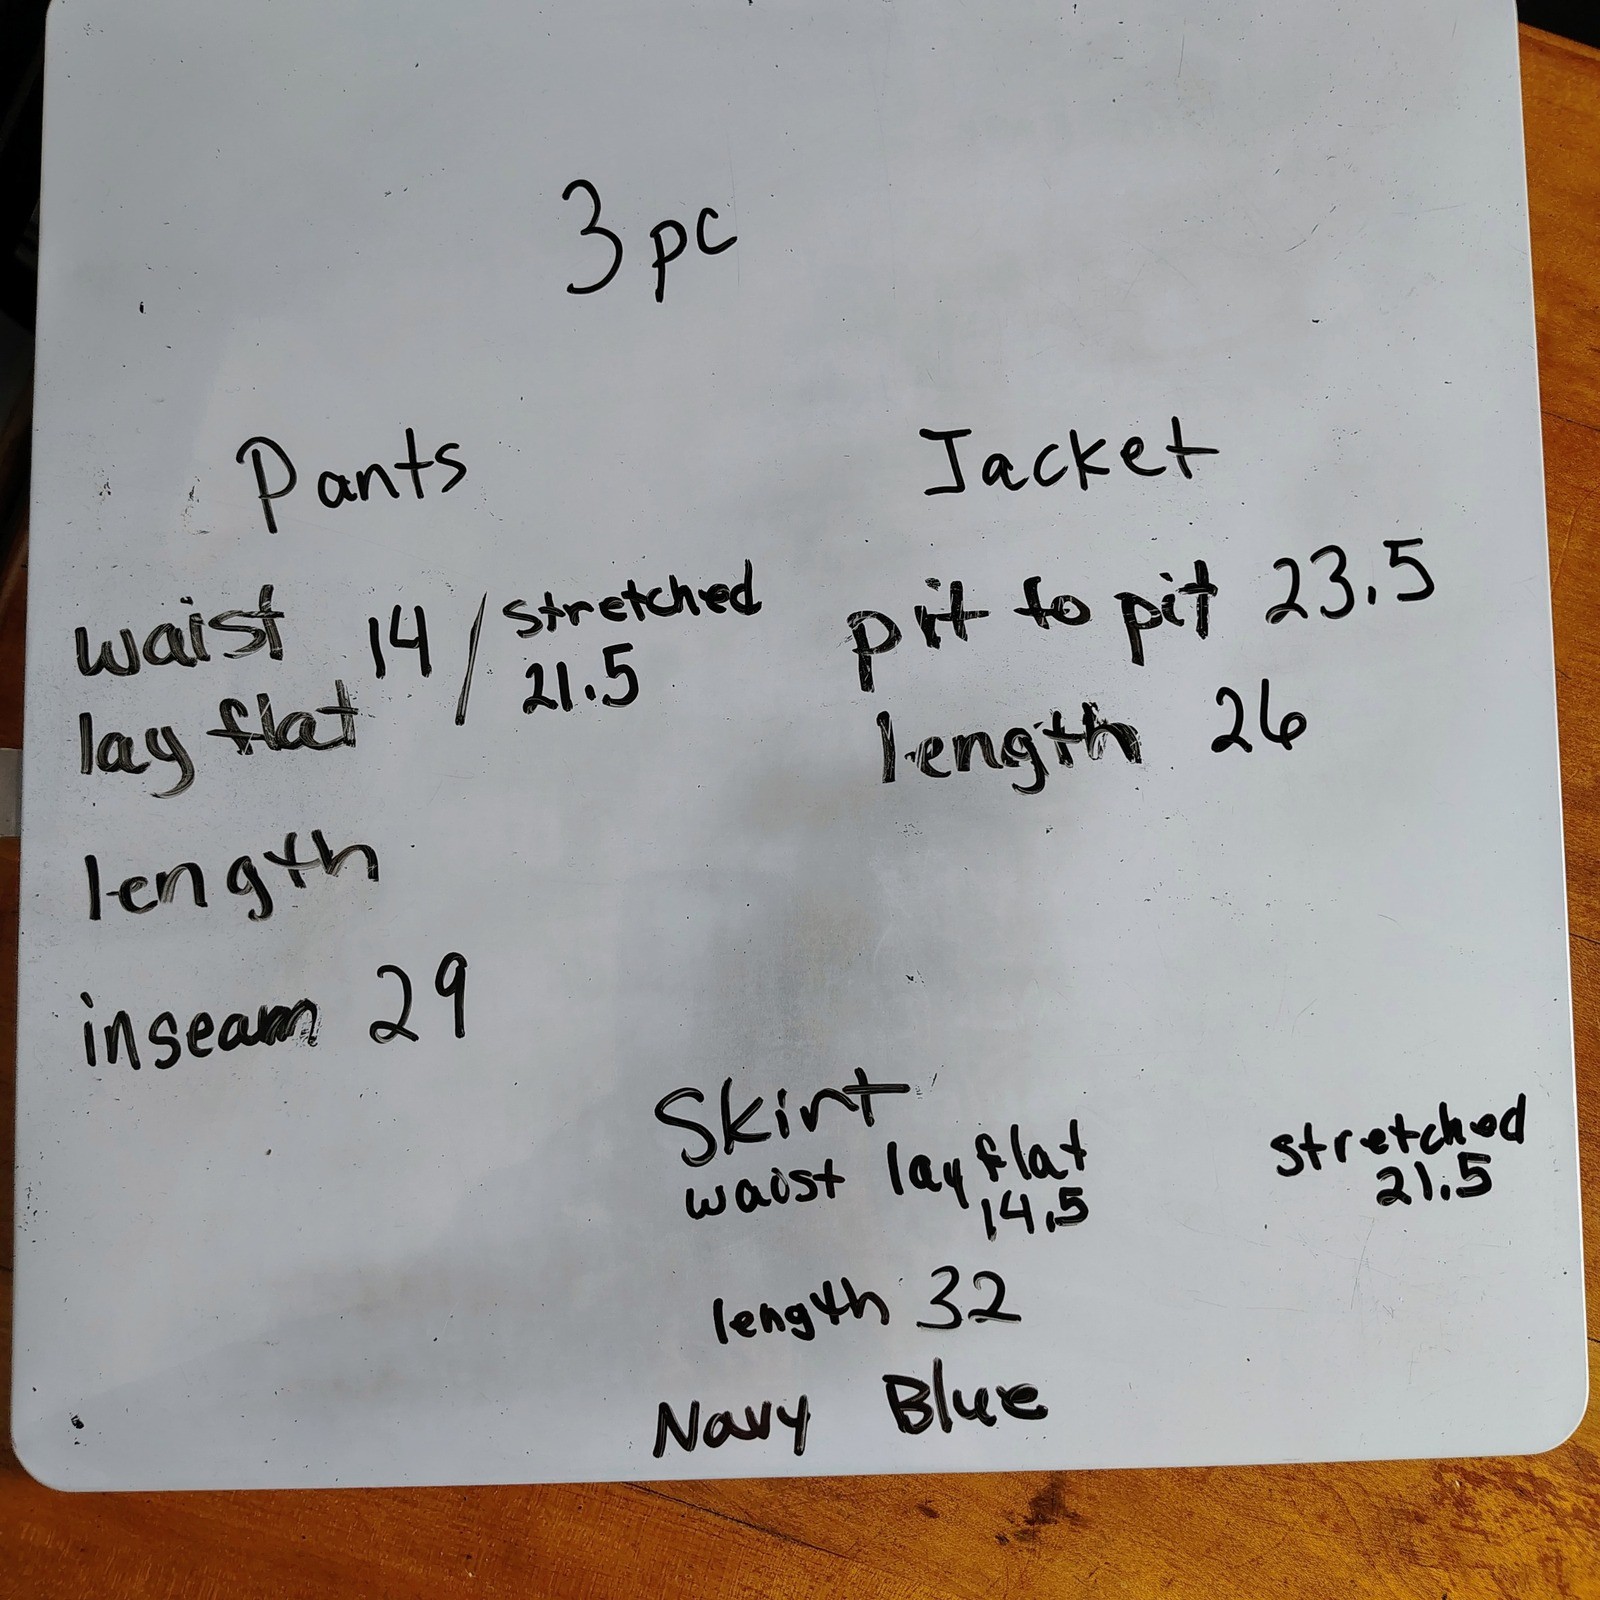 3 pc
Pants
waist 14 / stretched
lay flat 21.5
length
inseam 29
Jacket
pit to pit 23.5
length 26
Skirt
waist lay flat stretched
14.5 21.5
length 32
Navy Blue